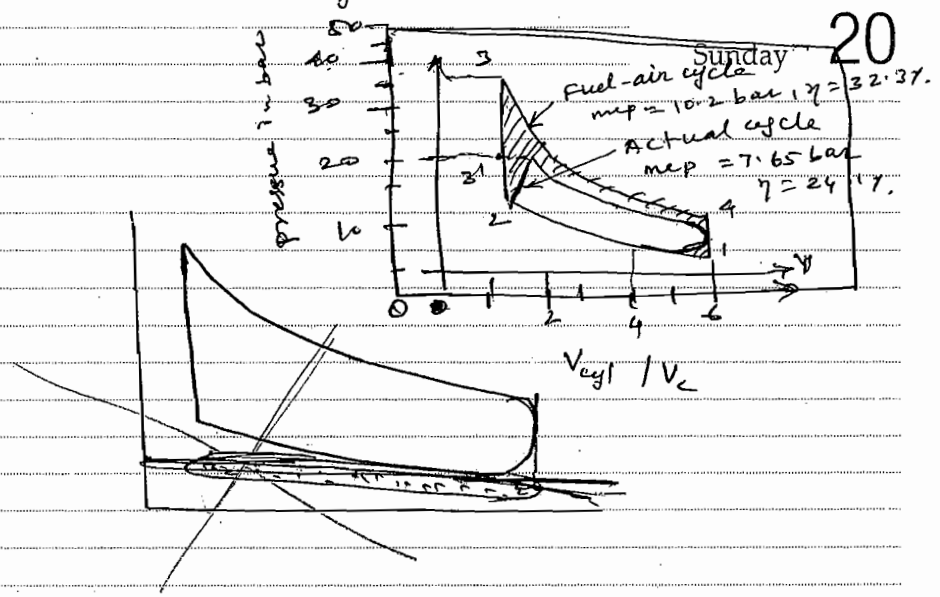 20
Sunday
pressure in bar
50
40
30
20
10
3
Fuel-air cycle
mep = 10.2 bar, η = 32.3%.
Actual cycle
mep = 7.65 bar
η = 24.1%.
3'
2
4
1
V
0
2
4
6
Vcyl / Vc